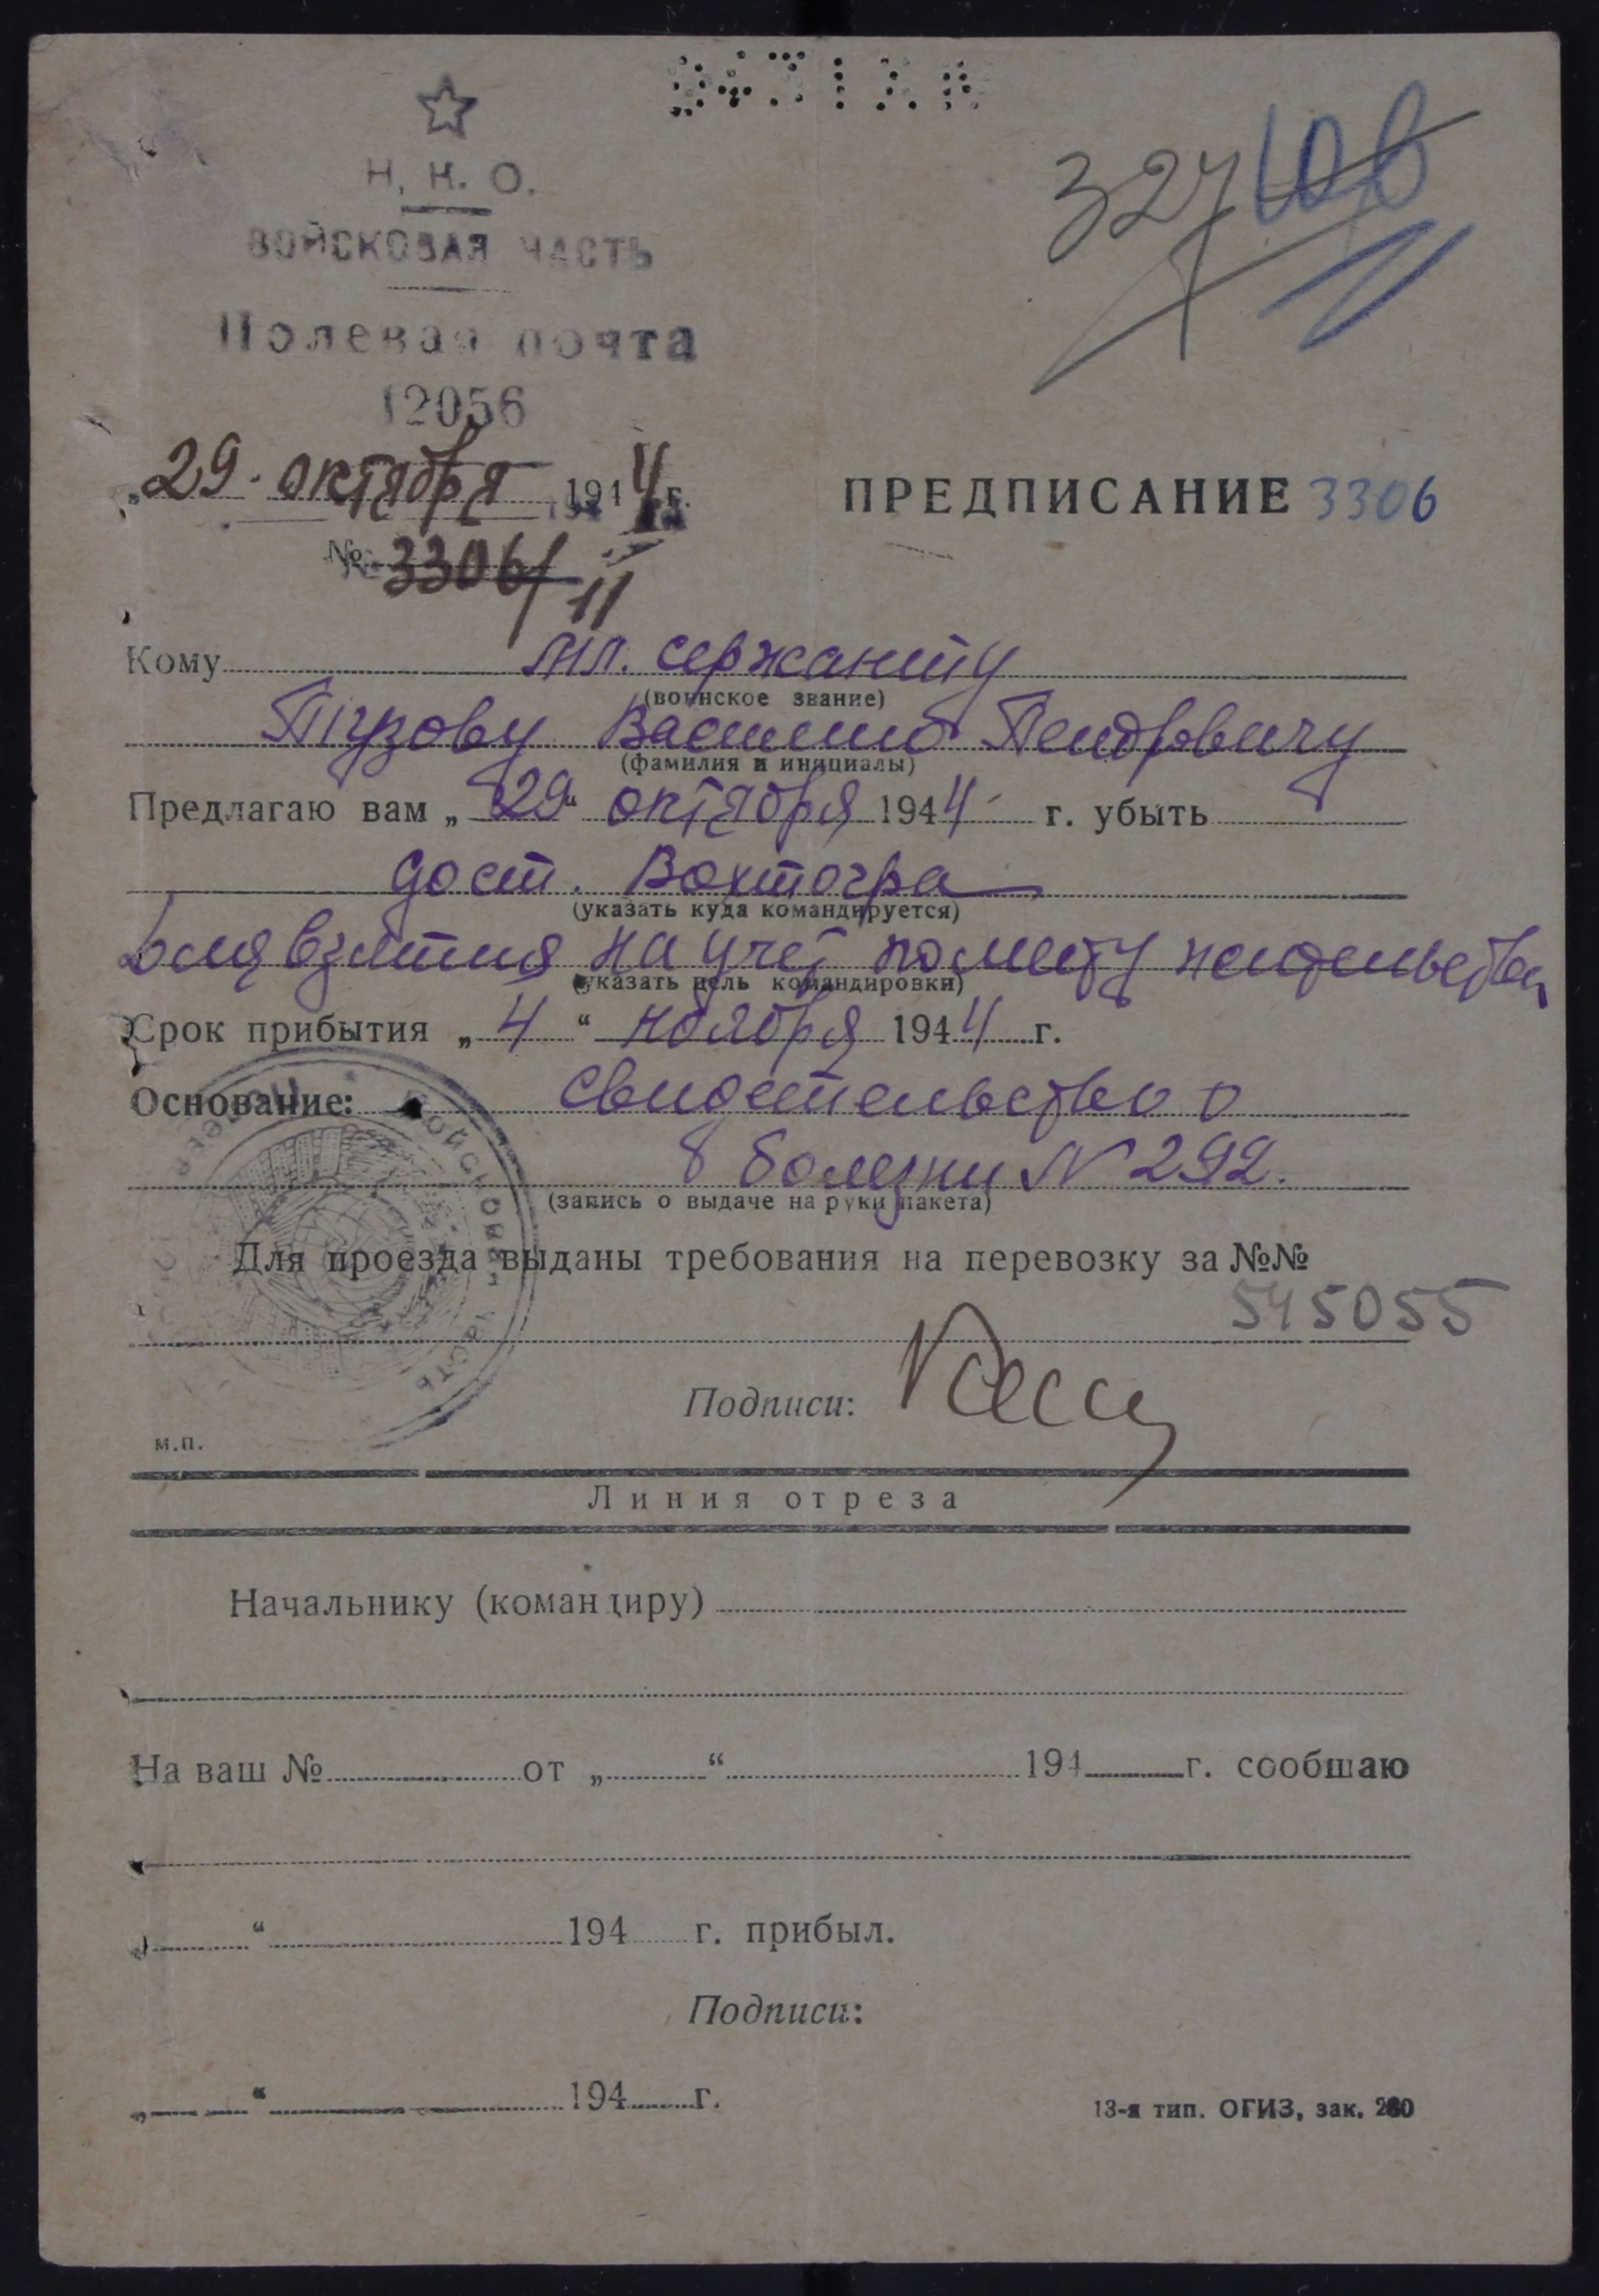 Н. К. О.
ВОЙСКОВАЯ ЧАСТЬ
Полевая почта
12056
„29. октября 1944 г.
№ 3306/II
327
ПРЕДПИСАНИЕ 3306
Кому мл. сержанту
(воинское звание)
Пузову Василию
(фамилия и инициалы)
Предлагаю вам „29“ октября 1944 г. убыть
до ст. Вохтога
(указать куда командируется)
Для взятия на учет по месту жительства
(указать цель командировки)
Срок прибытия „4“ ноября 1944 г.
Основание: свидетельство о
болезни № 292.
(запись о выдаче на руки пакета)
Для проезда выданы требования на перевозку за №№
545055
Подписи:
м.п.
Линия отреза
Начальнику (командиру)
На ваш № от „ “ 194 г. сообщаю
“ 194 г. прибыл.
Подписи:
„ “ 194 г.
13-я тип. ОГИЗ, зак. 260